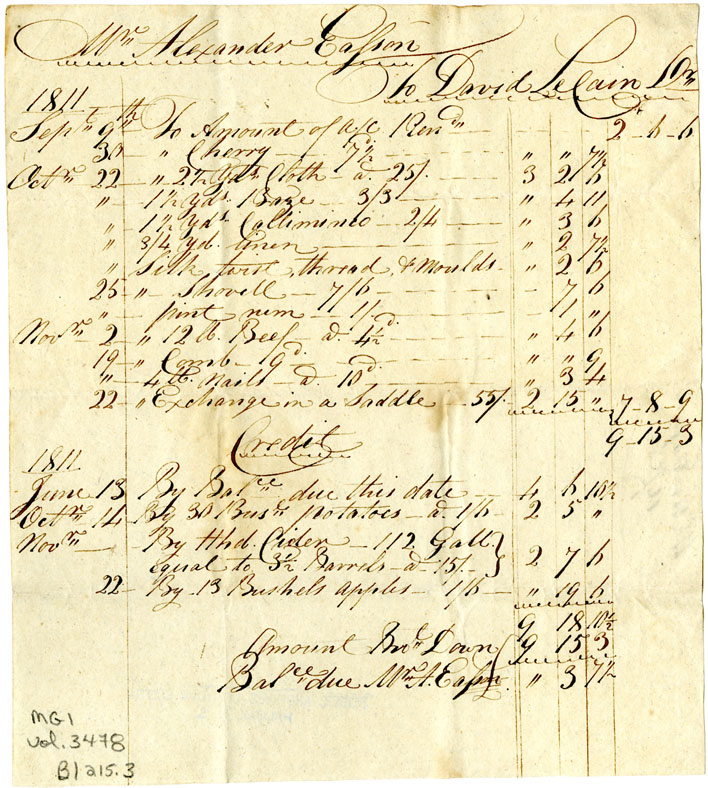 Mr Alexander Easson
To David LeCain Dr
1811
Septr 9th To Amount of a/c Rend - - 2 - 6 - 6
30 - " Cherry - 7½ - " " 7½
Octr 22 - " 2½ Yds Cloth a 25/. - 3 2 6
" - 1½ Yds Baze - 3/3 - " 4 11
" 1½ Yds Calliminco - 2/4 - " 3 6
" 3/4 Yd. Linen - " 2 7½
" Silk twist, thread, & Moulds - " 2 6
25 - " - Shovell - 7/6 - 7 6
" - pint rum - 1/. - 1 "
Novr 2 - " 12 lb. Beef a 4½d. - " 4 6
19 - " Comb - 9d. - " " 9
" - 4 lb. Nails - a. 10d. - " 3 4
22 - " Exchange in a Saddle - 55/. 2 15 " 7 - 8 - 9
9 - 15 - 3
Credit
1811
June 13 By Balce due this date - 4 6 10½
Octr 14 By 30 Busrs potatoes - a. 1/6 - 2 5 "
Novr - By Hhd. Cider - 112 Gall.
equal to 3½ Barrels - a - 15/- } 2 7 6
22 - By 13 Bushels apples - 1/6 - " 19 6
9 18 10½
Amount Brot Down 9 15 3
Balce due Mr A. Easson " 3 7½
MG1
vol. 3478
B/215.3